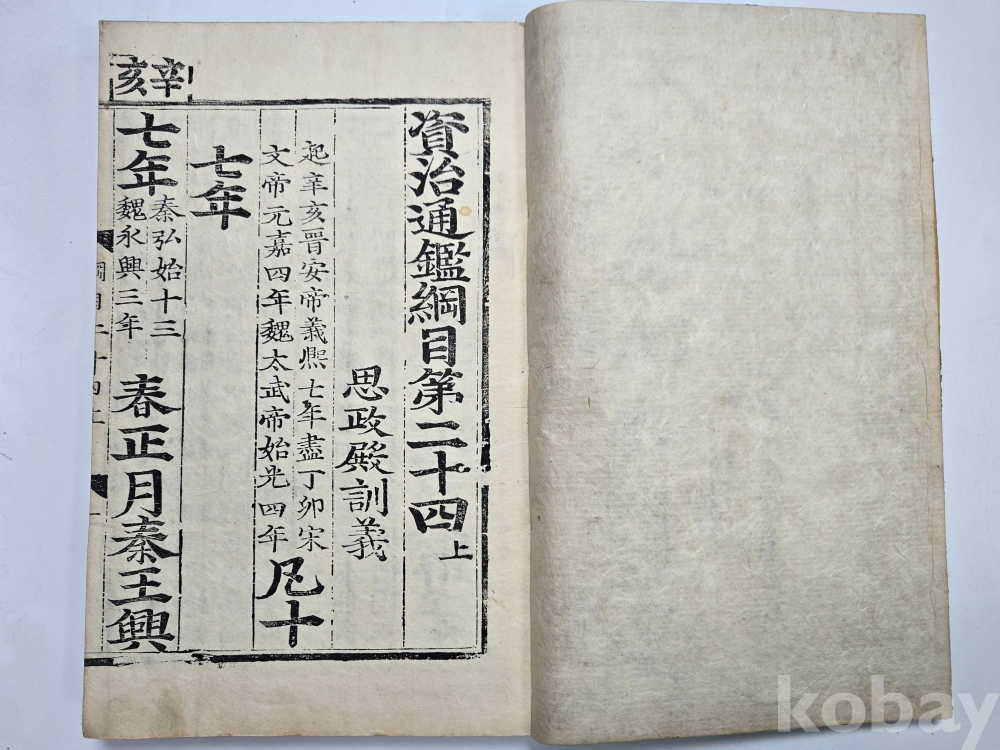 資治通鑑綱目第二十四上
思政殿訓義
起辛亥晉安帝義熙七年盡丁卯宋
文帝元嘉四年魏太武帝始光四年
凡十
七年
辛亥
七年
秦弘始十三
魏永興三年
春正月秦王興
kobay